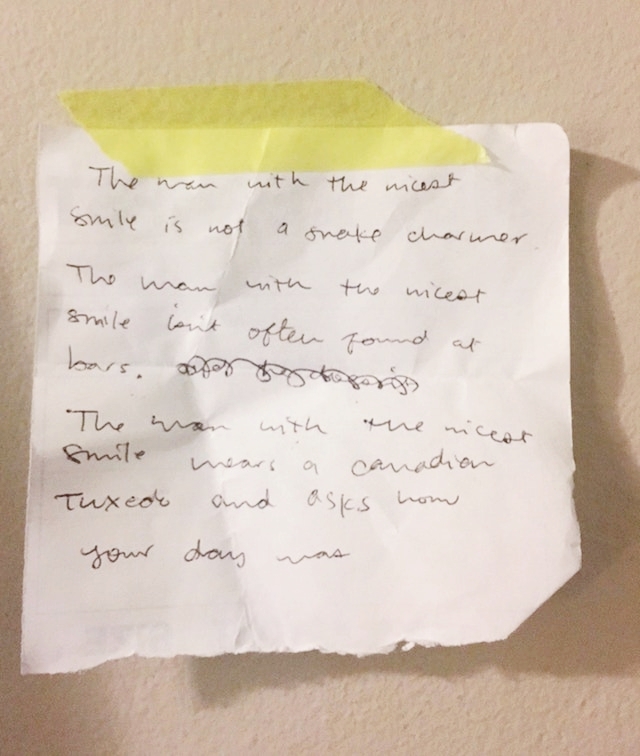 The man with the nicest
smile is not a snake charmer.
The man with the nicest
smile isn't often found at
bars.
The man with the nicest
smile wears a canadian
Tuxedo and asks how
your day was